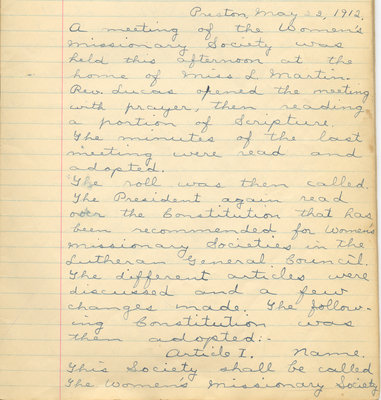 Preston, May 23, 1912.
A meeting of the Women's
Missionary Society was
held this afternoon at the
home of Miss L. Martin.
Rev. Lucas opened the meeting
with prayer, then reading
a portion of Scripture.
The minutes of the last
meeting were read and
adopted.
The roll was then called.
The President again read
over the Constitution that has
been recommended for Women's
Missionary Societies in the
Lutheran General Council.
The different articles were
discussed and a few
changes made. The follow-
ing Constitution was
then adopted:-
Article I. Name.
This Society shall be called
The Women's Missionary Society